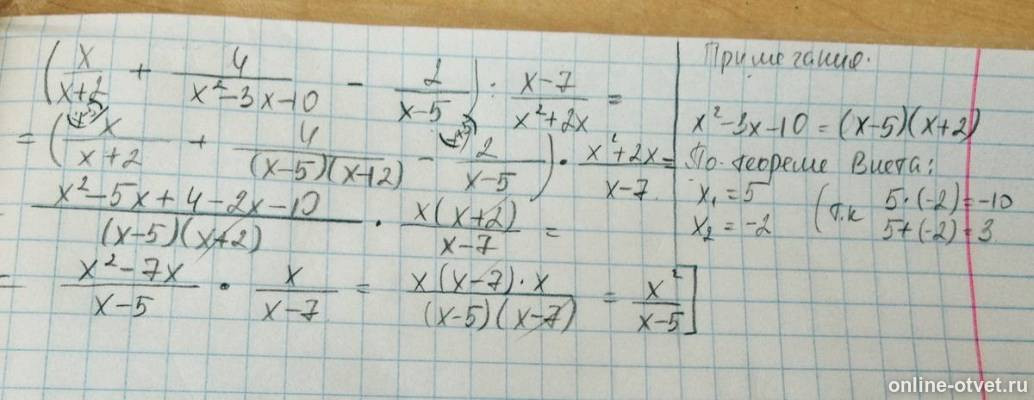 (x/(x+2) + 4/(x²-3x-10) - 2/(x-5)) : (x-7)/(x²+2x) =
= (x/(x+2) + 4/((x-5)(x+2)) - 2/(x-5)) · (x²+2x)/(x-7) =
(x²-5x+4-2x-10)/((x-5)(x+2)) · x(x+2)/(x-7) =
= (x²-7x)/(x-5) · x/(x-7) = (x(x-7)·x)/((x-5)(x-7)) = x²/(x-5)]
Примечание:
x²-3x-10=(x-5)(x+2)
По теореме Виета:
x₁=5 (т.к 5·(-2)=-10
x₂=-2 5+(-2)=3
online-otvet.ru